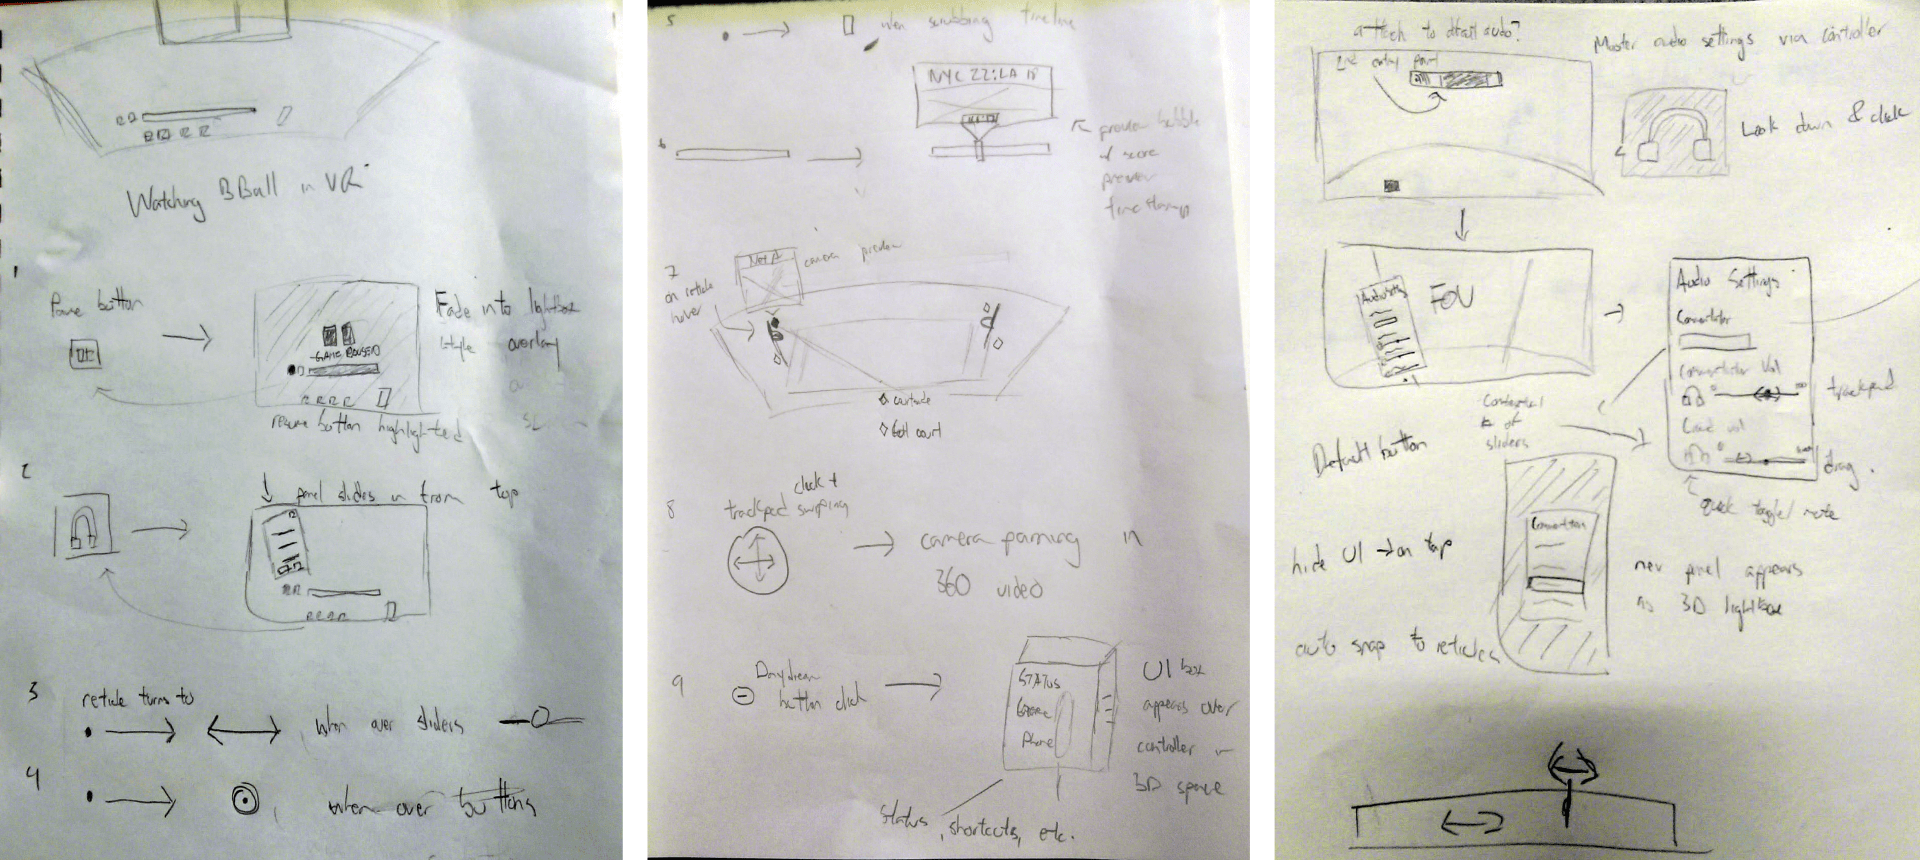 Watching BBall in VR
1
Pause button
Fade into lightbox
style overlay
GAME PAUSED
resume button highlighted
2
panel slides in from top
3
reticle turns to
when over sliders
4
when over buttons
5
when scrubbing timeline
NYC 22:LA 18
6
preview bubble
w/ score
preview
timestamp
7
camera preview
on reticle
hover
courtside
8
click +
trackpad swiping
camera panning in
360 video
9
Daydream
button click
STATUS
Game
Phone
UI box
appears over
controller in
3D space
Status, shortcuts, etc.
attach to detail audio?
2nd entry point
Master audio settings via controller
Look down & click
FOV
Audio Settings
Commentator
Commentator Vol
trackpad
Contextual
# of
sliders
Crowd vol
drag.
Default button
quick toggle/mute
hide UI → on tap
new panel appears
as 3D lightbox
auto snap to reticles